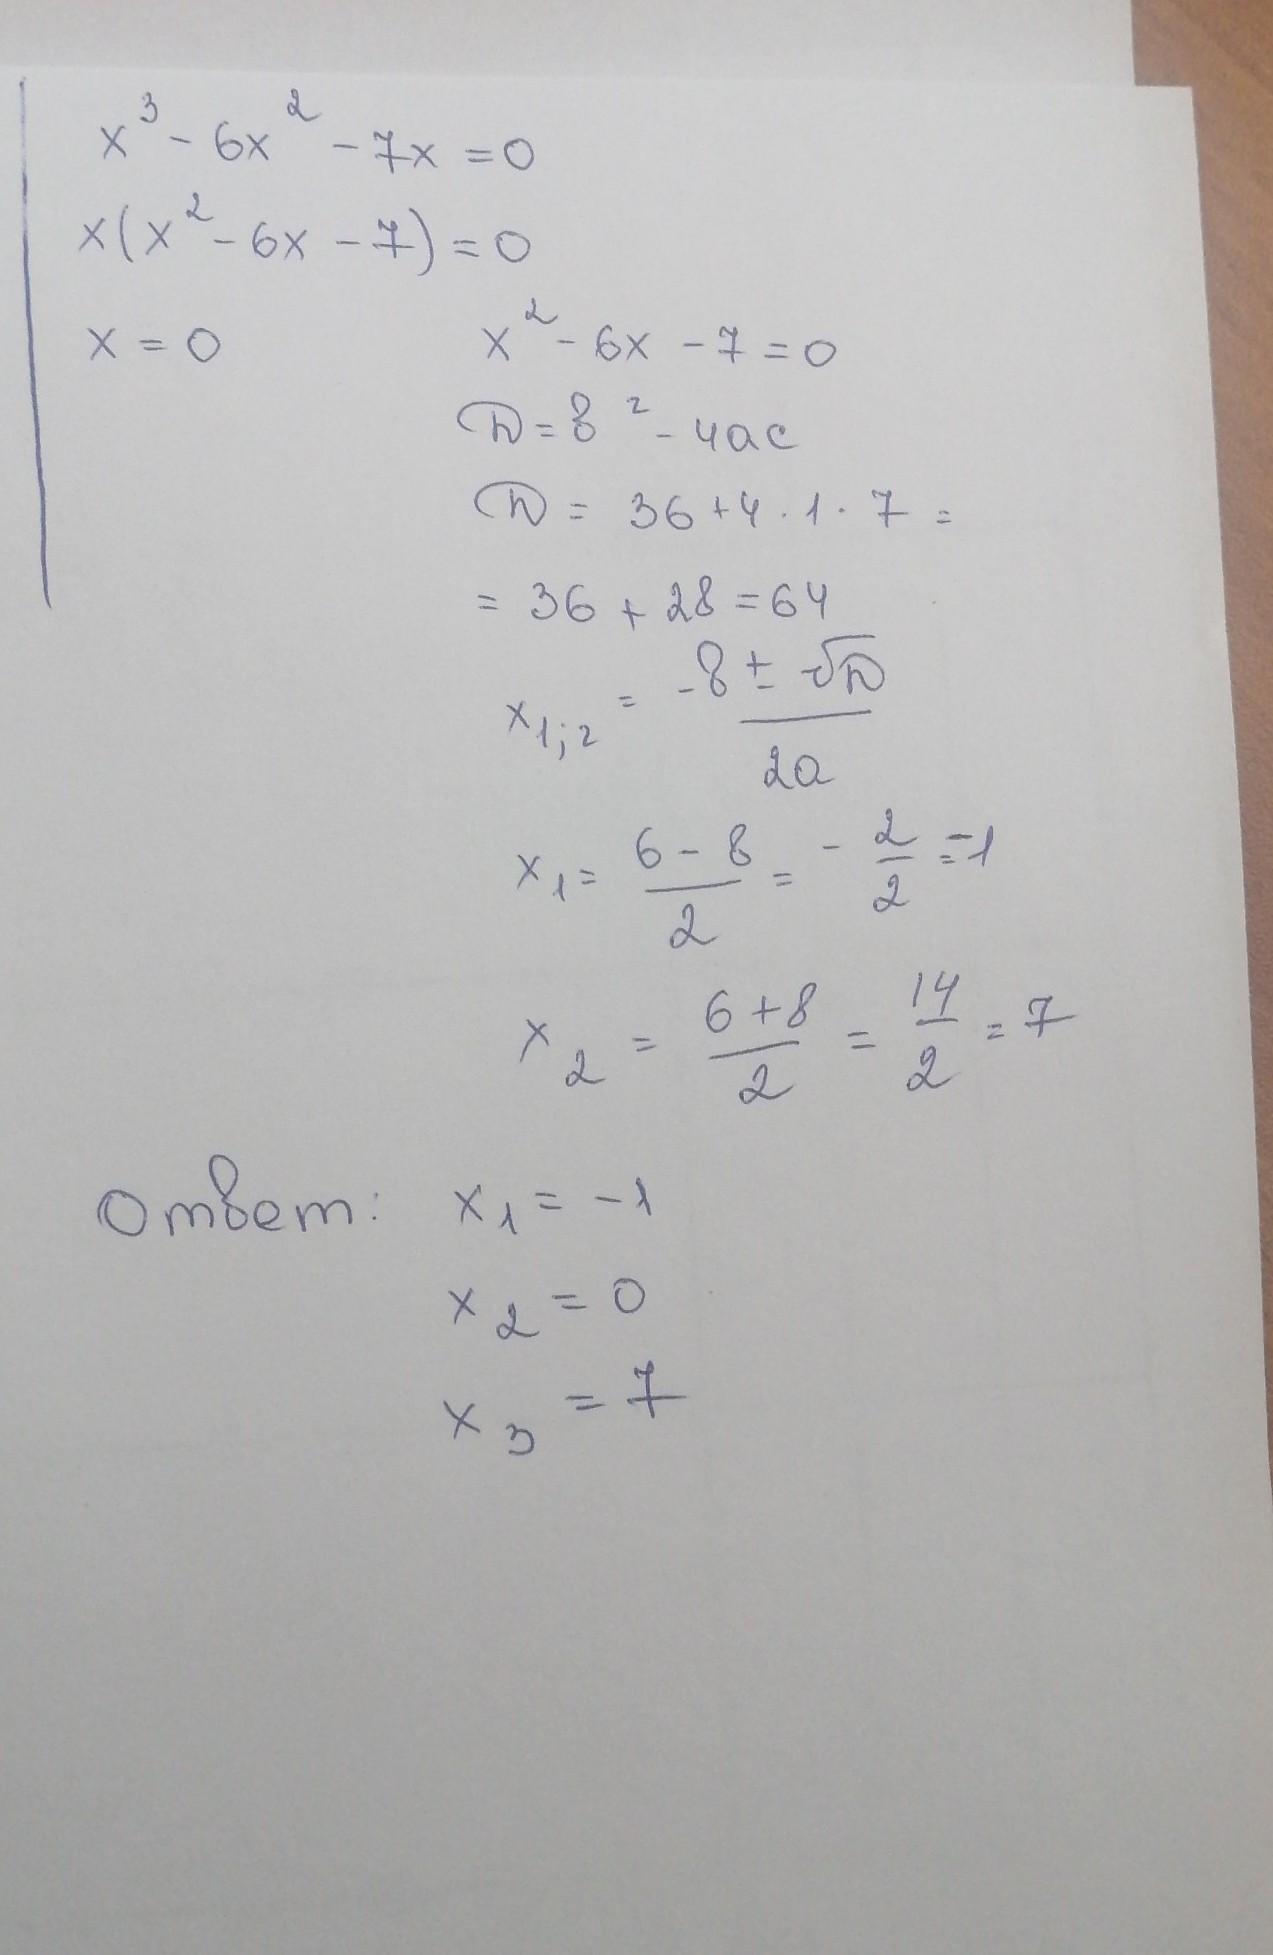 x³ - 6x² - 7x = 0
x(x² - 6x - 7) = 0
x = 0 x² - 6x - 7 = 0
D = в² - 4ac
D = 36 + 4 · 1 · 7 =
= 36 + 28 = 64
x₁;₂ = (-в ± √D) / 2a
x₁ = (6 - 8) / 2 = - 2/2 = -1
x₂ = (6 + 8) / 2 = 14/2 = 7
Ответ: x₁ = -1
x₂ = 0
x₃ = 7